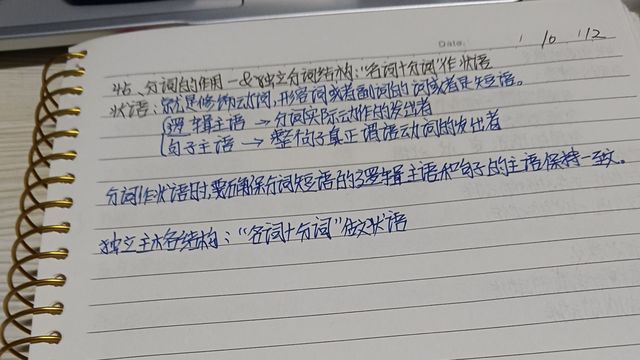 Date.
1 / 10 / 12
分词的作用-&独立分词结构:“名词+分词”作状语
状语:就是修饰动词,形容词或者副词的词或者是短语。
逻辑主语 → 分词实际动作的发出者
句子主语 → 整个句子真正谓语动词的发出者
分词作状语时,要确保分词短语的逻辑主语和句子的主语保持一致。
独立主格结构:“名词+分词”做状语